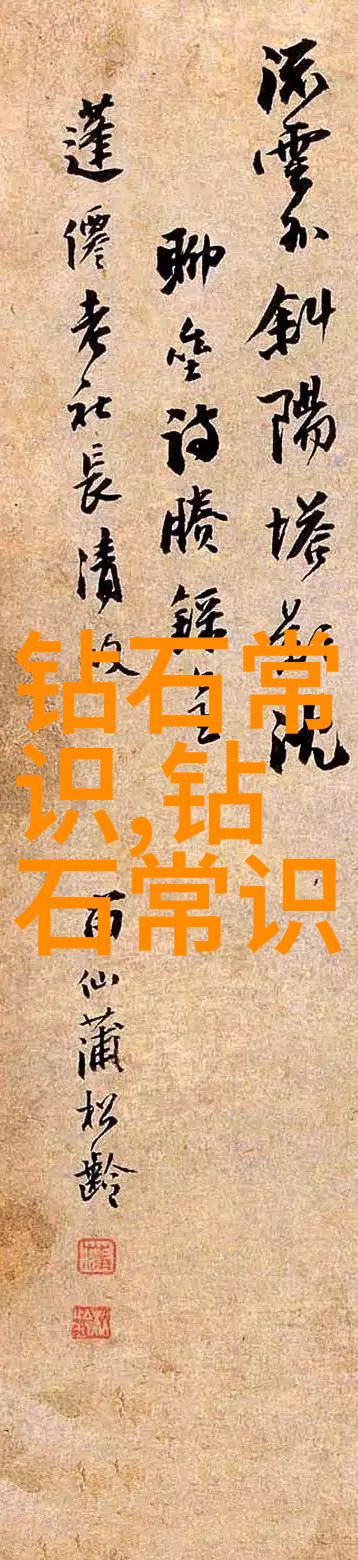 流雲外斜陽塔沈
聊詩
蓬僊老社長清政
留仙蒲松齡
钻石常
识,钻
石常识